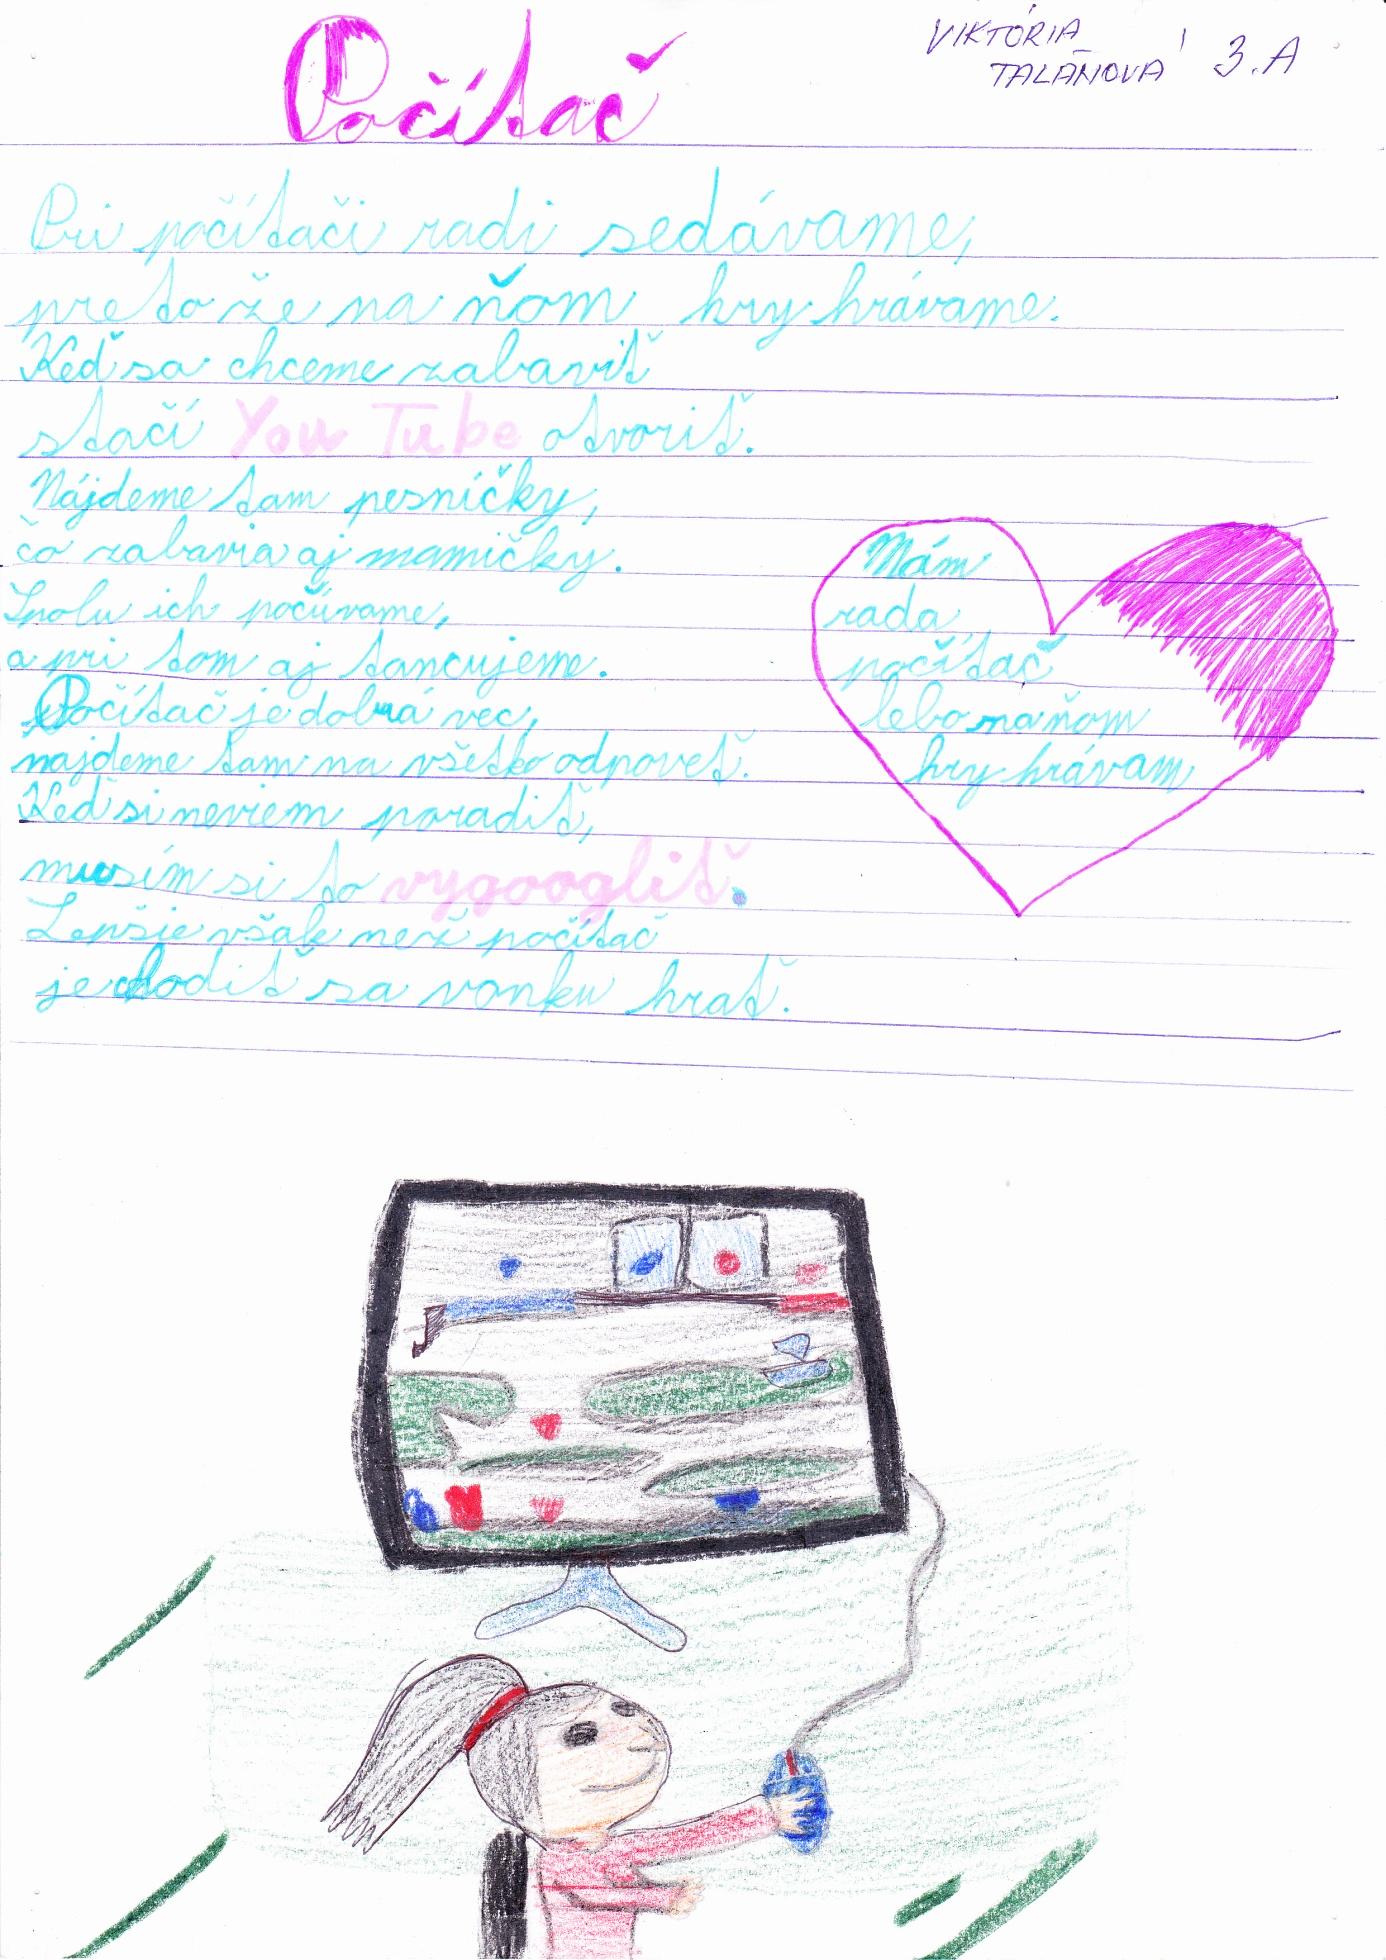 VIKTÓRIA
TALAŇOVÁ 3.A
Počítač
Pri počítači radi sedávame,
pretože na ňom hry hrávame.
Keď sa chceme zabaviť
stačí You Tube otvoriť.
Nájdeme tam pesničky,
čo zabavia aj mamičky.
Spolu ich počúvame,
a pri tom aj tancujeme.
Počítač je dobrá vec,
najdeme tam na všetko odpoveť.
Keď si neviem poradiť,
musím si to vygoogliť.
Lepšie však než počítač
je chodiť sa vonku hrať.
Mám
rada
počítač
lebo na ňom
hry hrávam